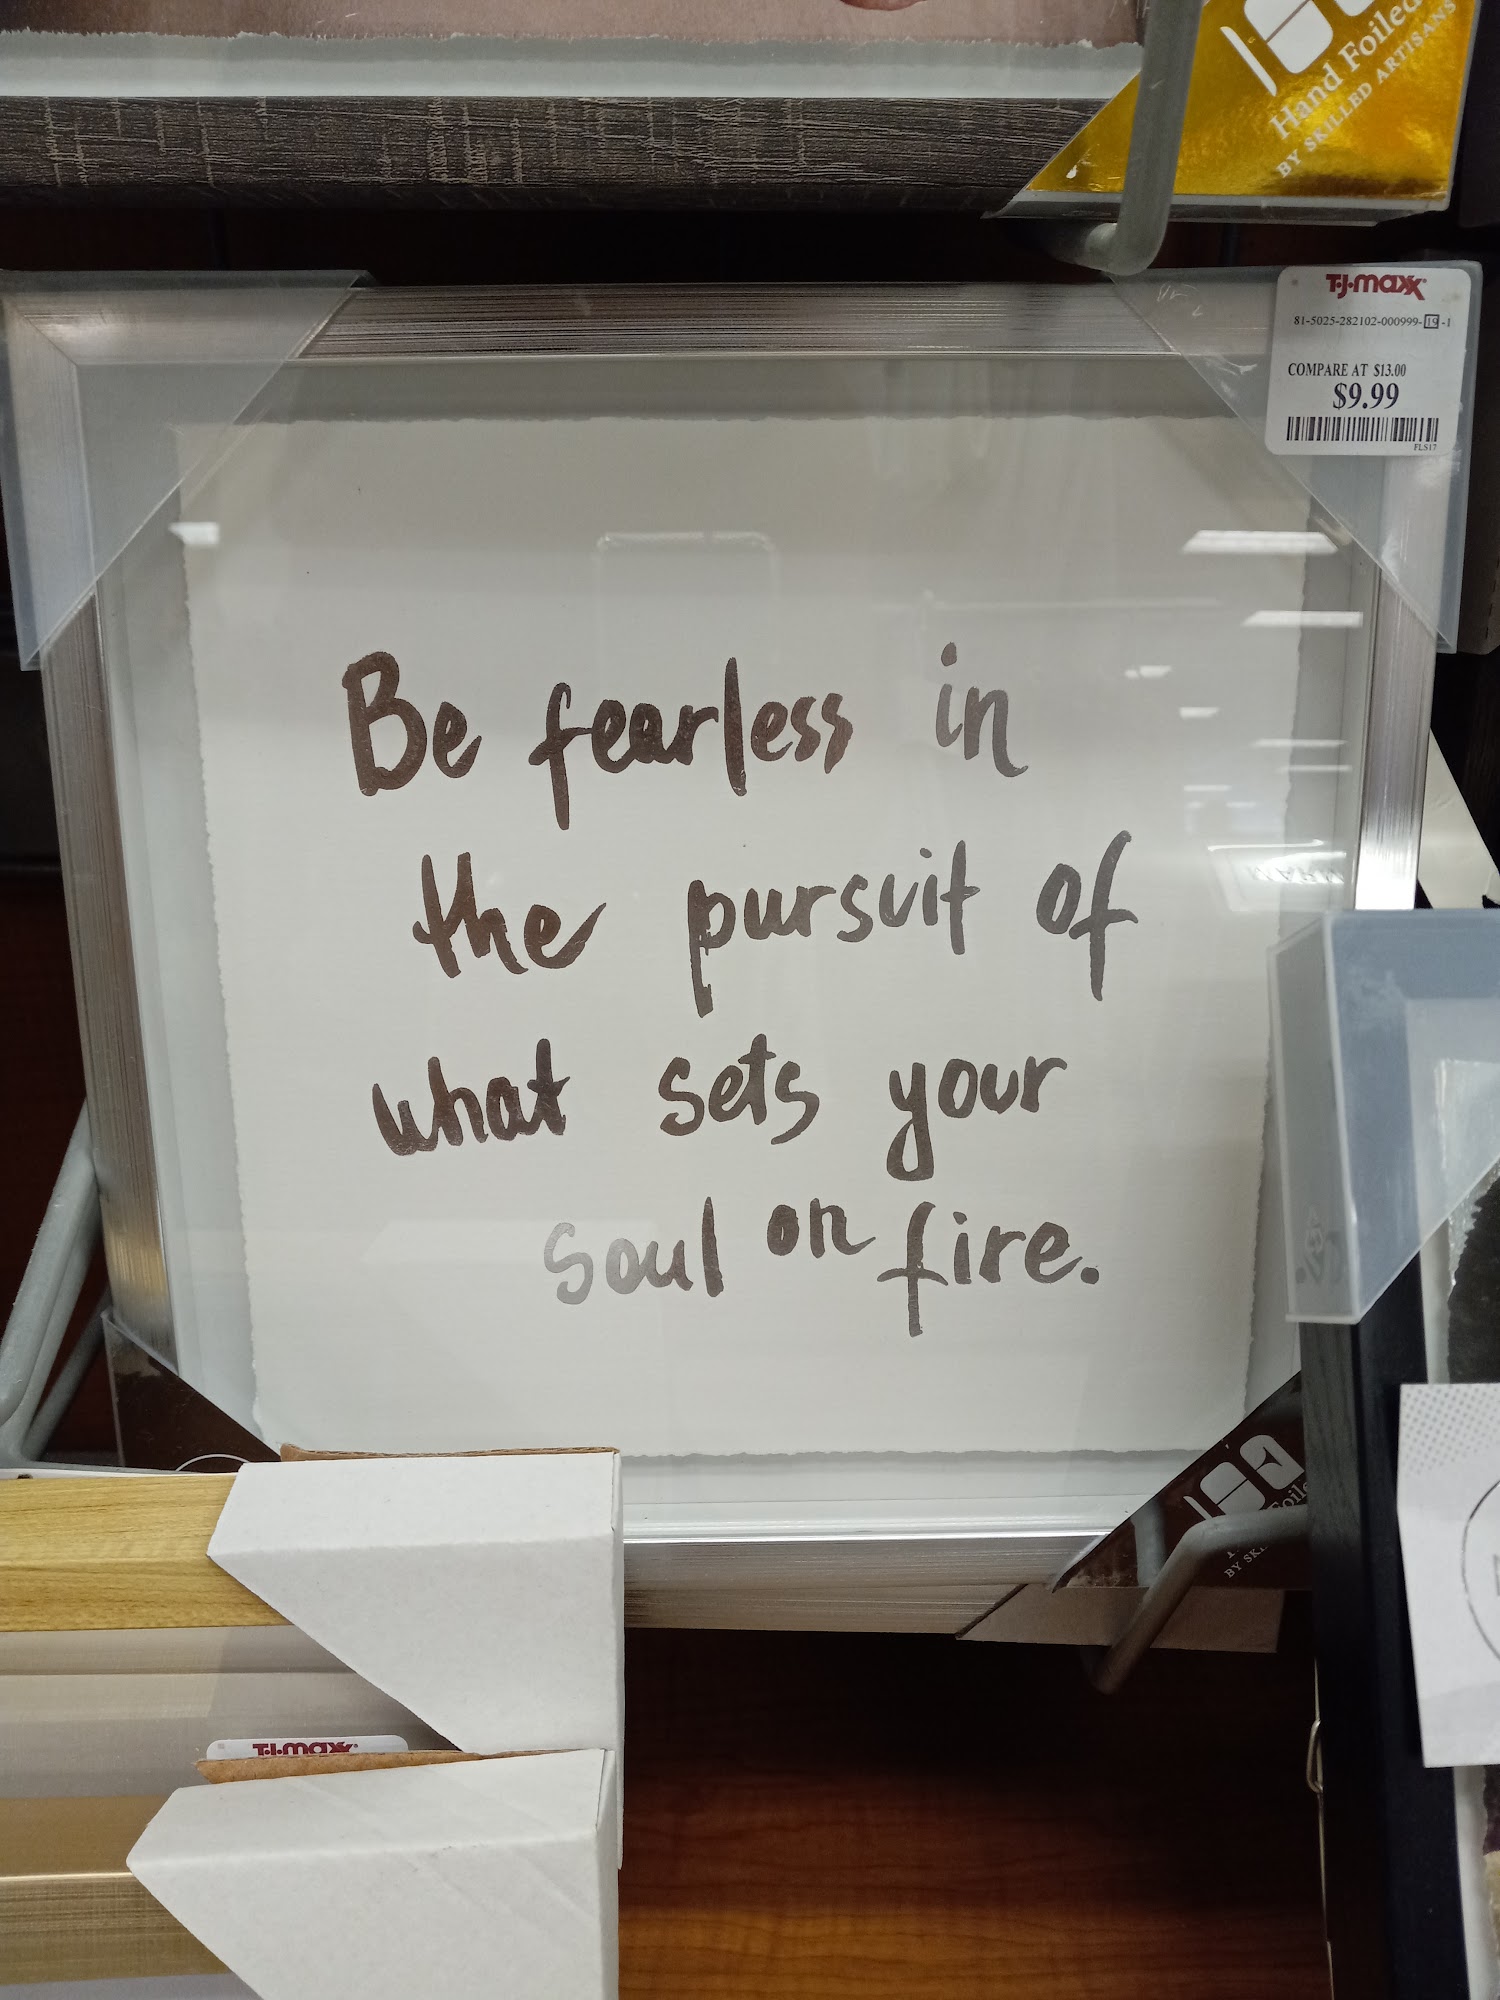 Hand Foiled
BY SKILLED ARTISANS
T.J.maxx
81-5025-282102-000999-19-1
COMPARE AT $13.00
$9.99
FLS17
Be fearless in
the pursuit of
what sets your
soul on fire.
BY
T.J.maxx